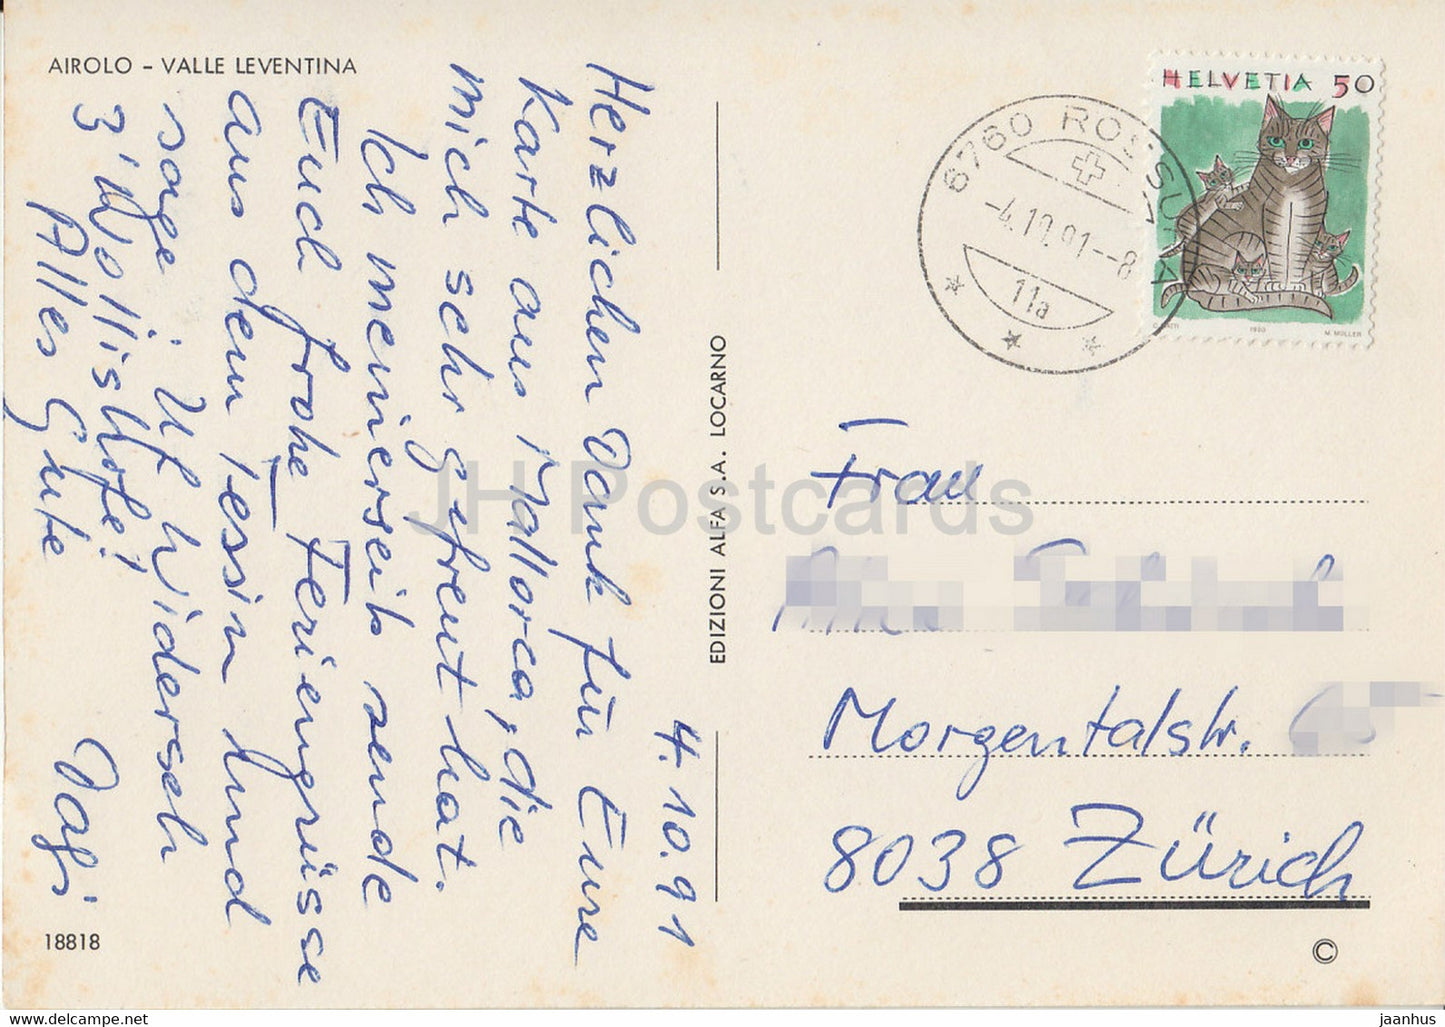 AIROLO – VALLE LEVENTINA
4.10.91
Herzlichen Dank für Eure
Karte aus Mallorca, die
mich sehr gfreut hat.
Ich meinerseits sende
Euch frohe Feriengrüsse
aus dem Tessin und
sage Uf Widerseh
z'Wollishofe!
Alles Gute
18818
EDIZIONI ALFA S.A. LOCARNO
HELVETIA 50
1990
M. MÜLLER
6760 ROSSURA
-4.10.91--8
11a
Frau
Morgentalstr.
8038 Zürich
©
JH Postcards
jaanhus - https://www.delcampe.net